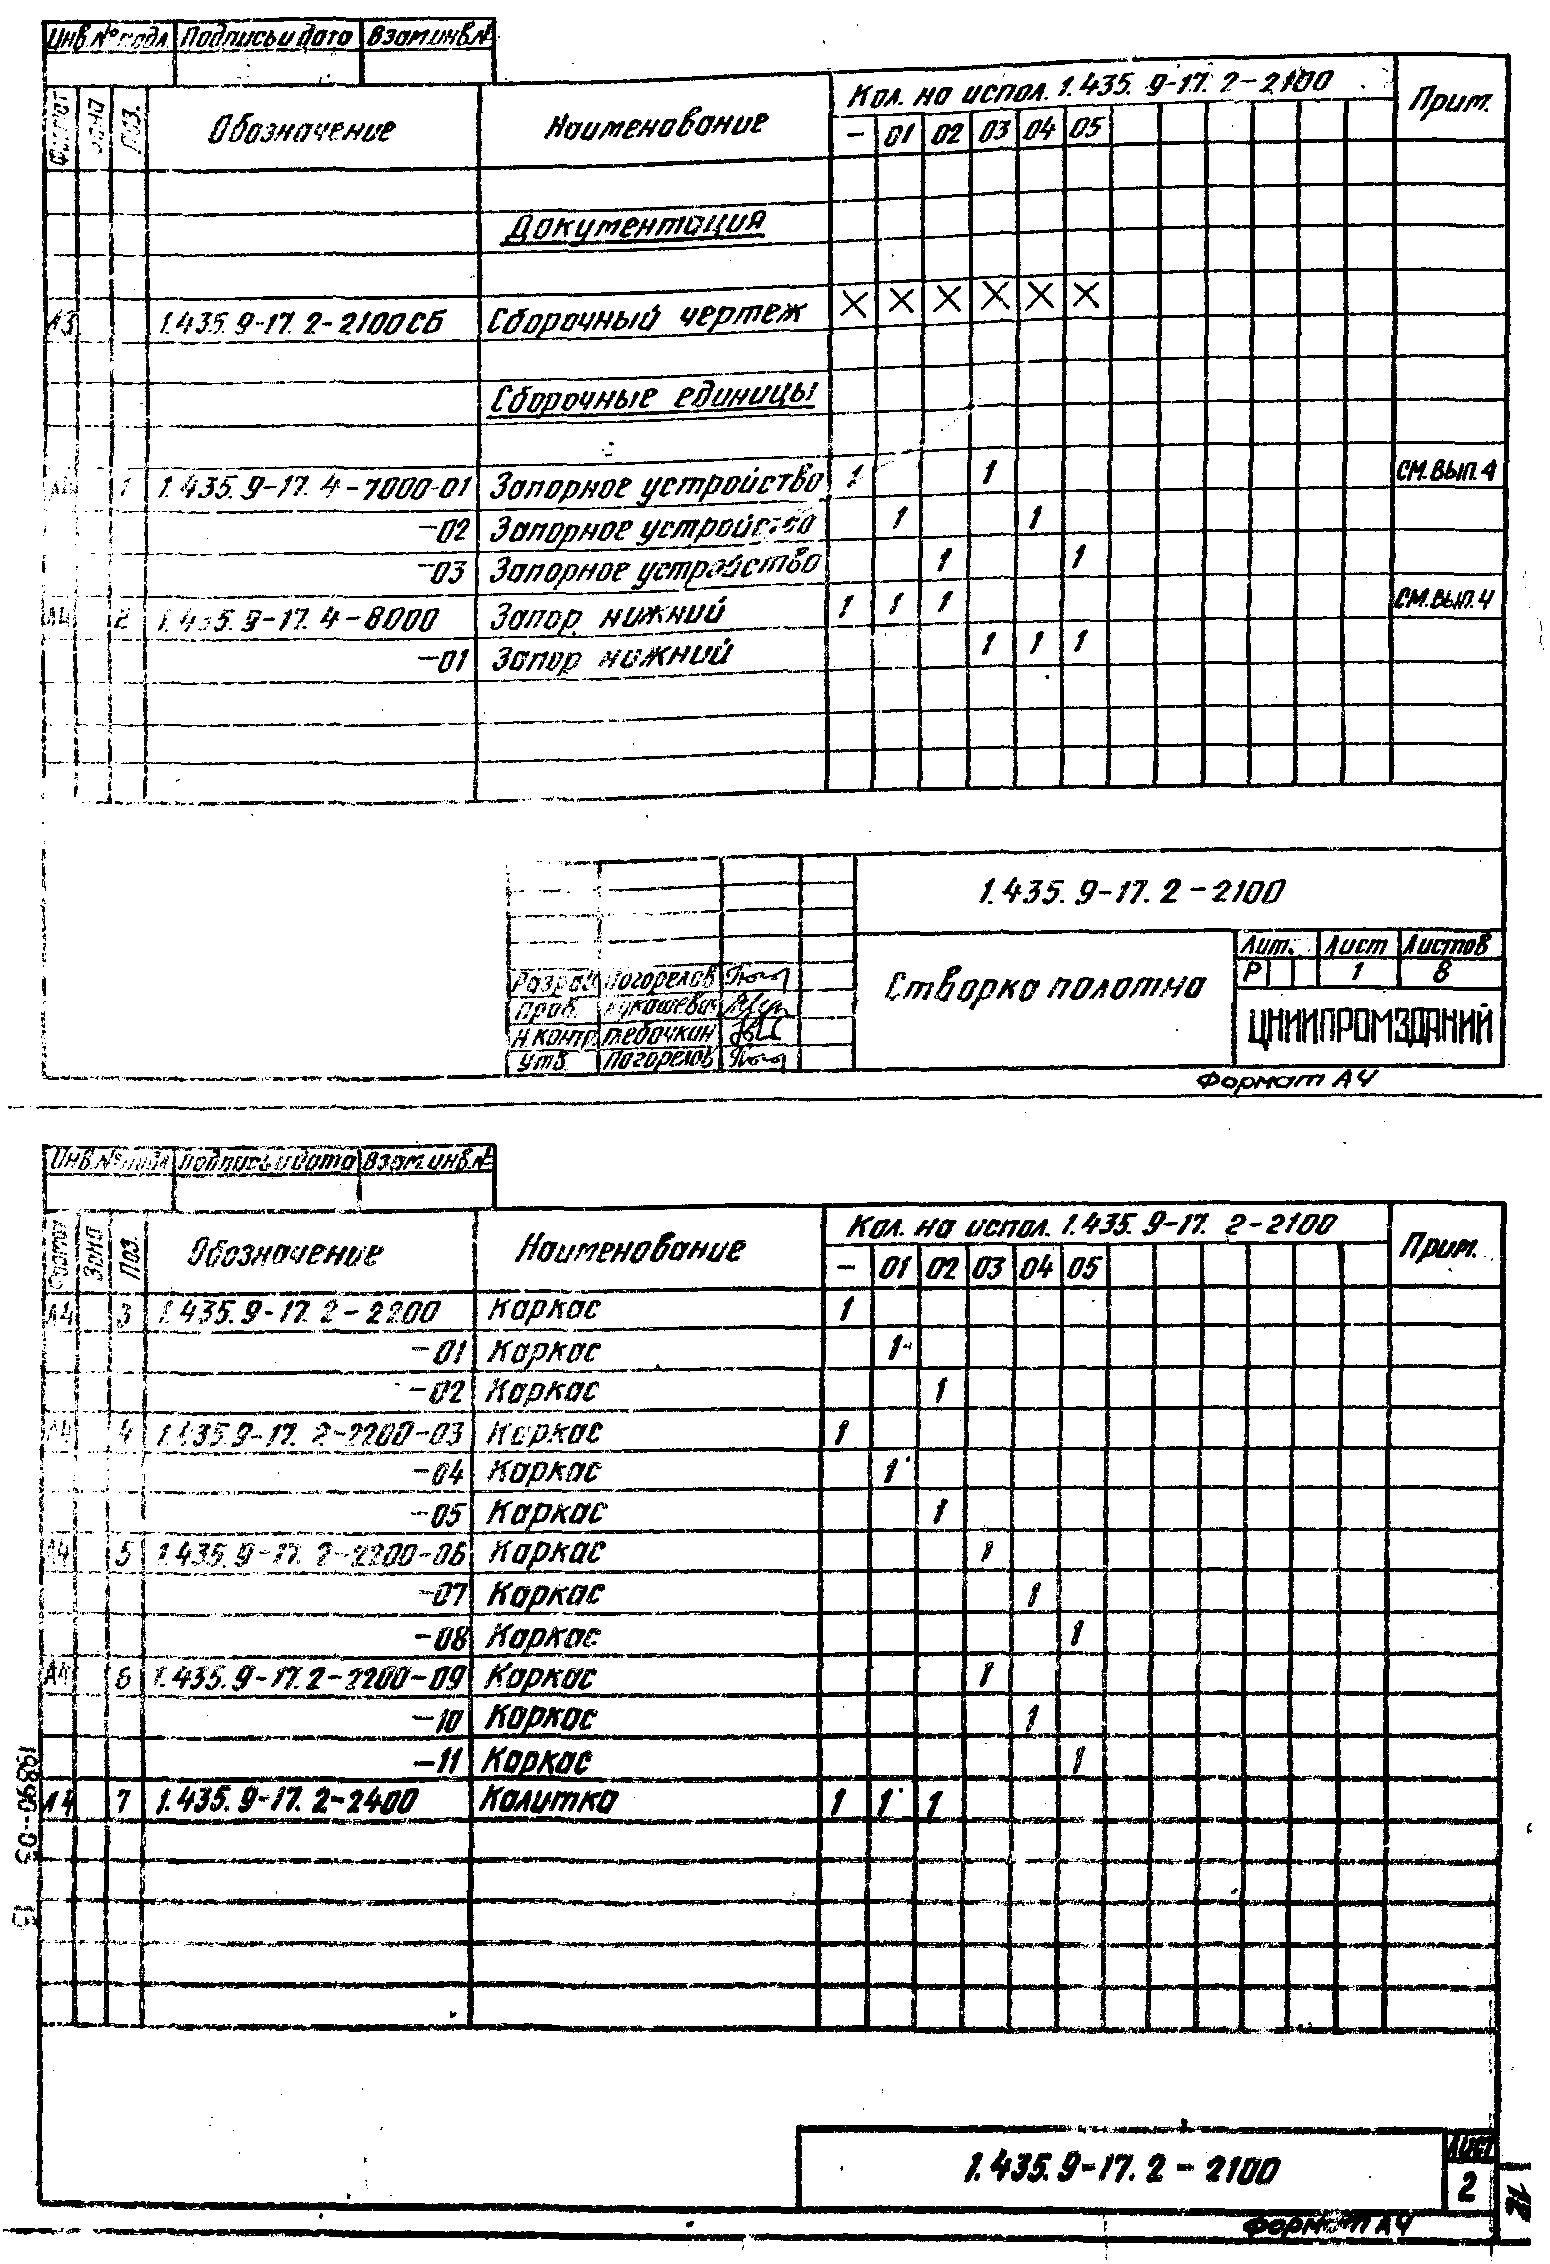 Инв.№ подл. Подпись и дата Взам.инв.№
Формат Зона Поз. Обозначение Наименование Кол. на испол. 1.435.9-17.2-2100 Прим.
— 01 02 03 04 05
Документация
А3 1.435.9-17.2-2100СБ Сборочный чертеж X X X X X X
Сборочные единицы
А4 1 1.435.9-17.4-7000-01 Запорное устройство 1 1 см.вып.4
-02 Запорное устройство 1 1
-03 Запорное устройство 1 1
А4 2 1.435.9-17.4-8000 Запор нижний 1 1 1 см.вып.4
-01 Запор нижний 1 1 1
1.435.9-17.2-2100
Лит. Лист Листов
Разраб. Погорелов Створка полотна Р 1 8
Пров. Лукашевич
Н.контр. Тебачкин ЦНИИПРОМЗДАНИЙ
Утв. Погорелов
Формат А4
Инв.№ подл. Подпись и дата Взам.инв.№
Формат Зона Поз. Обозначение Наименование Кол. на испол. 1.435.9-17.2-2100 Прим.
— 01 02 03 04 05
А4 3 1.435.9-17.2-2200 Каркас 1
-01 Каркас 1
-02 Каркас 1
А4 4 1.435.9-17.2-2200-03 Каркас 1
-04 Каркас 1
-05 Каркас 1
А4 5 1.435.9-17.2-2200-06 Каркас 1
-07 Каркас 1
-08 Каркас 1
А4 6 1.435.9-17.2-2200-09 Каркас 1
-10 Каркас 1
-11 Каркас 1
А4 7 1.435.9-17.2-2400 Калитка 1 1 1
19890-03 13
1.435.9-17.2-2100 Лист
2
12
Формат А4